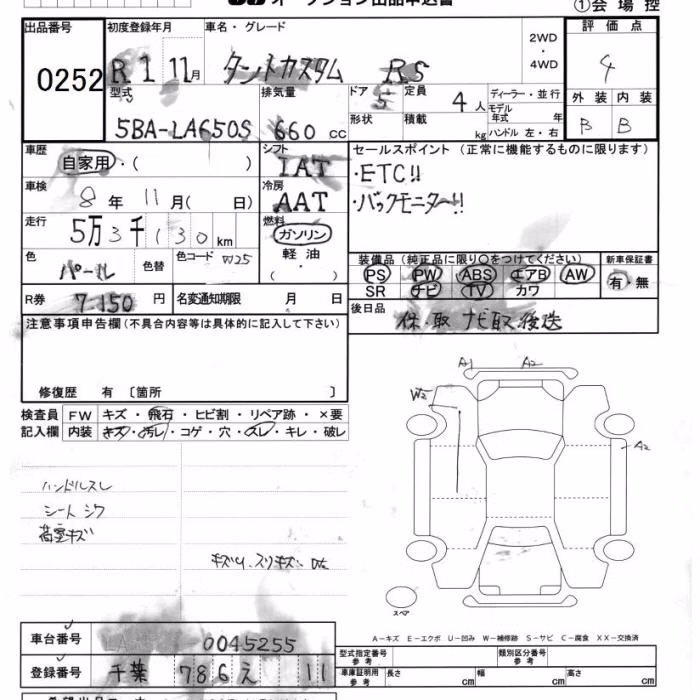 オークション出品申込書
①会場控
出品番号 0252
初度登録年月 R1 11月
車名・グレード タントカスタム RS
2WD・4WD
評価点 4
型式 5BA-LA650S
排気量 660 cc
ドア 5
形状
定員 4人
積載 kg
ディーラー・並行
モデル年式 年
ハンドル 左・右
外装 B
内装 B
車歴 自家用・( )
シフト IAT
セールスポイント (正常に機能するものに限ります)
・ETC!!
・バックモニター!!
車検 8年 11月( 日)
冷房 AAT
走行 5万3千130km
燃料 ガソリン
軽油・( )
色 パール
色替
色コード W25
装備品(純正品に限り〇をつけてください)
新車保証書
PS PW ABS エアB AW
有・無
SR ナビ TV カワ
R券 7.150円
名変通知期限 月 日
後日品 保・取 ナビ取 後送
注意事項申告欄(不具合内容等は具体的に記入して下さい)
修復歴 有 〔箇所 〕
検査員記入欄
FW キズ・飛石・ヒビ割・リペア跡・×要
内装 キズ・汚レ・コゲ・穴・スレ・キレ・破レ
ハンドルスレ
シート シワ
荷室キズ
A1 A2
W2
A2
スペア
A-キズ E-エクボ U-凹み W-補修跡 S-サビ C-腐食 XX-交換済
車台番号 0045255
登録番号 千葉 786 え 11
型式指定番号 参考
類別区分番号 参考
車庫証明用 参考 長さ cm 幅 cm 高さ cm